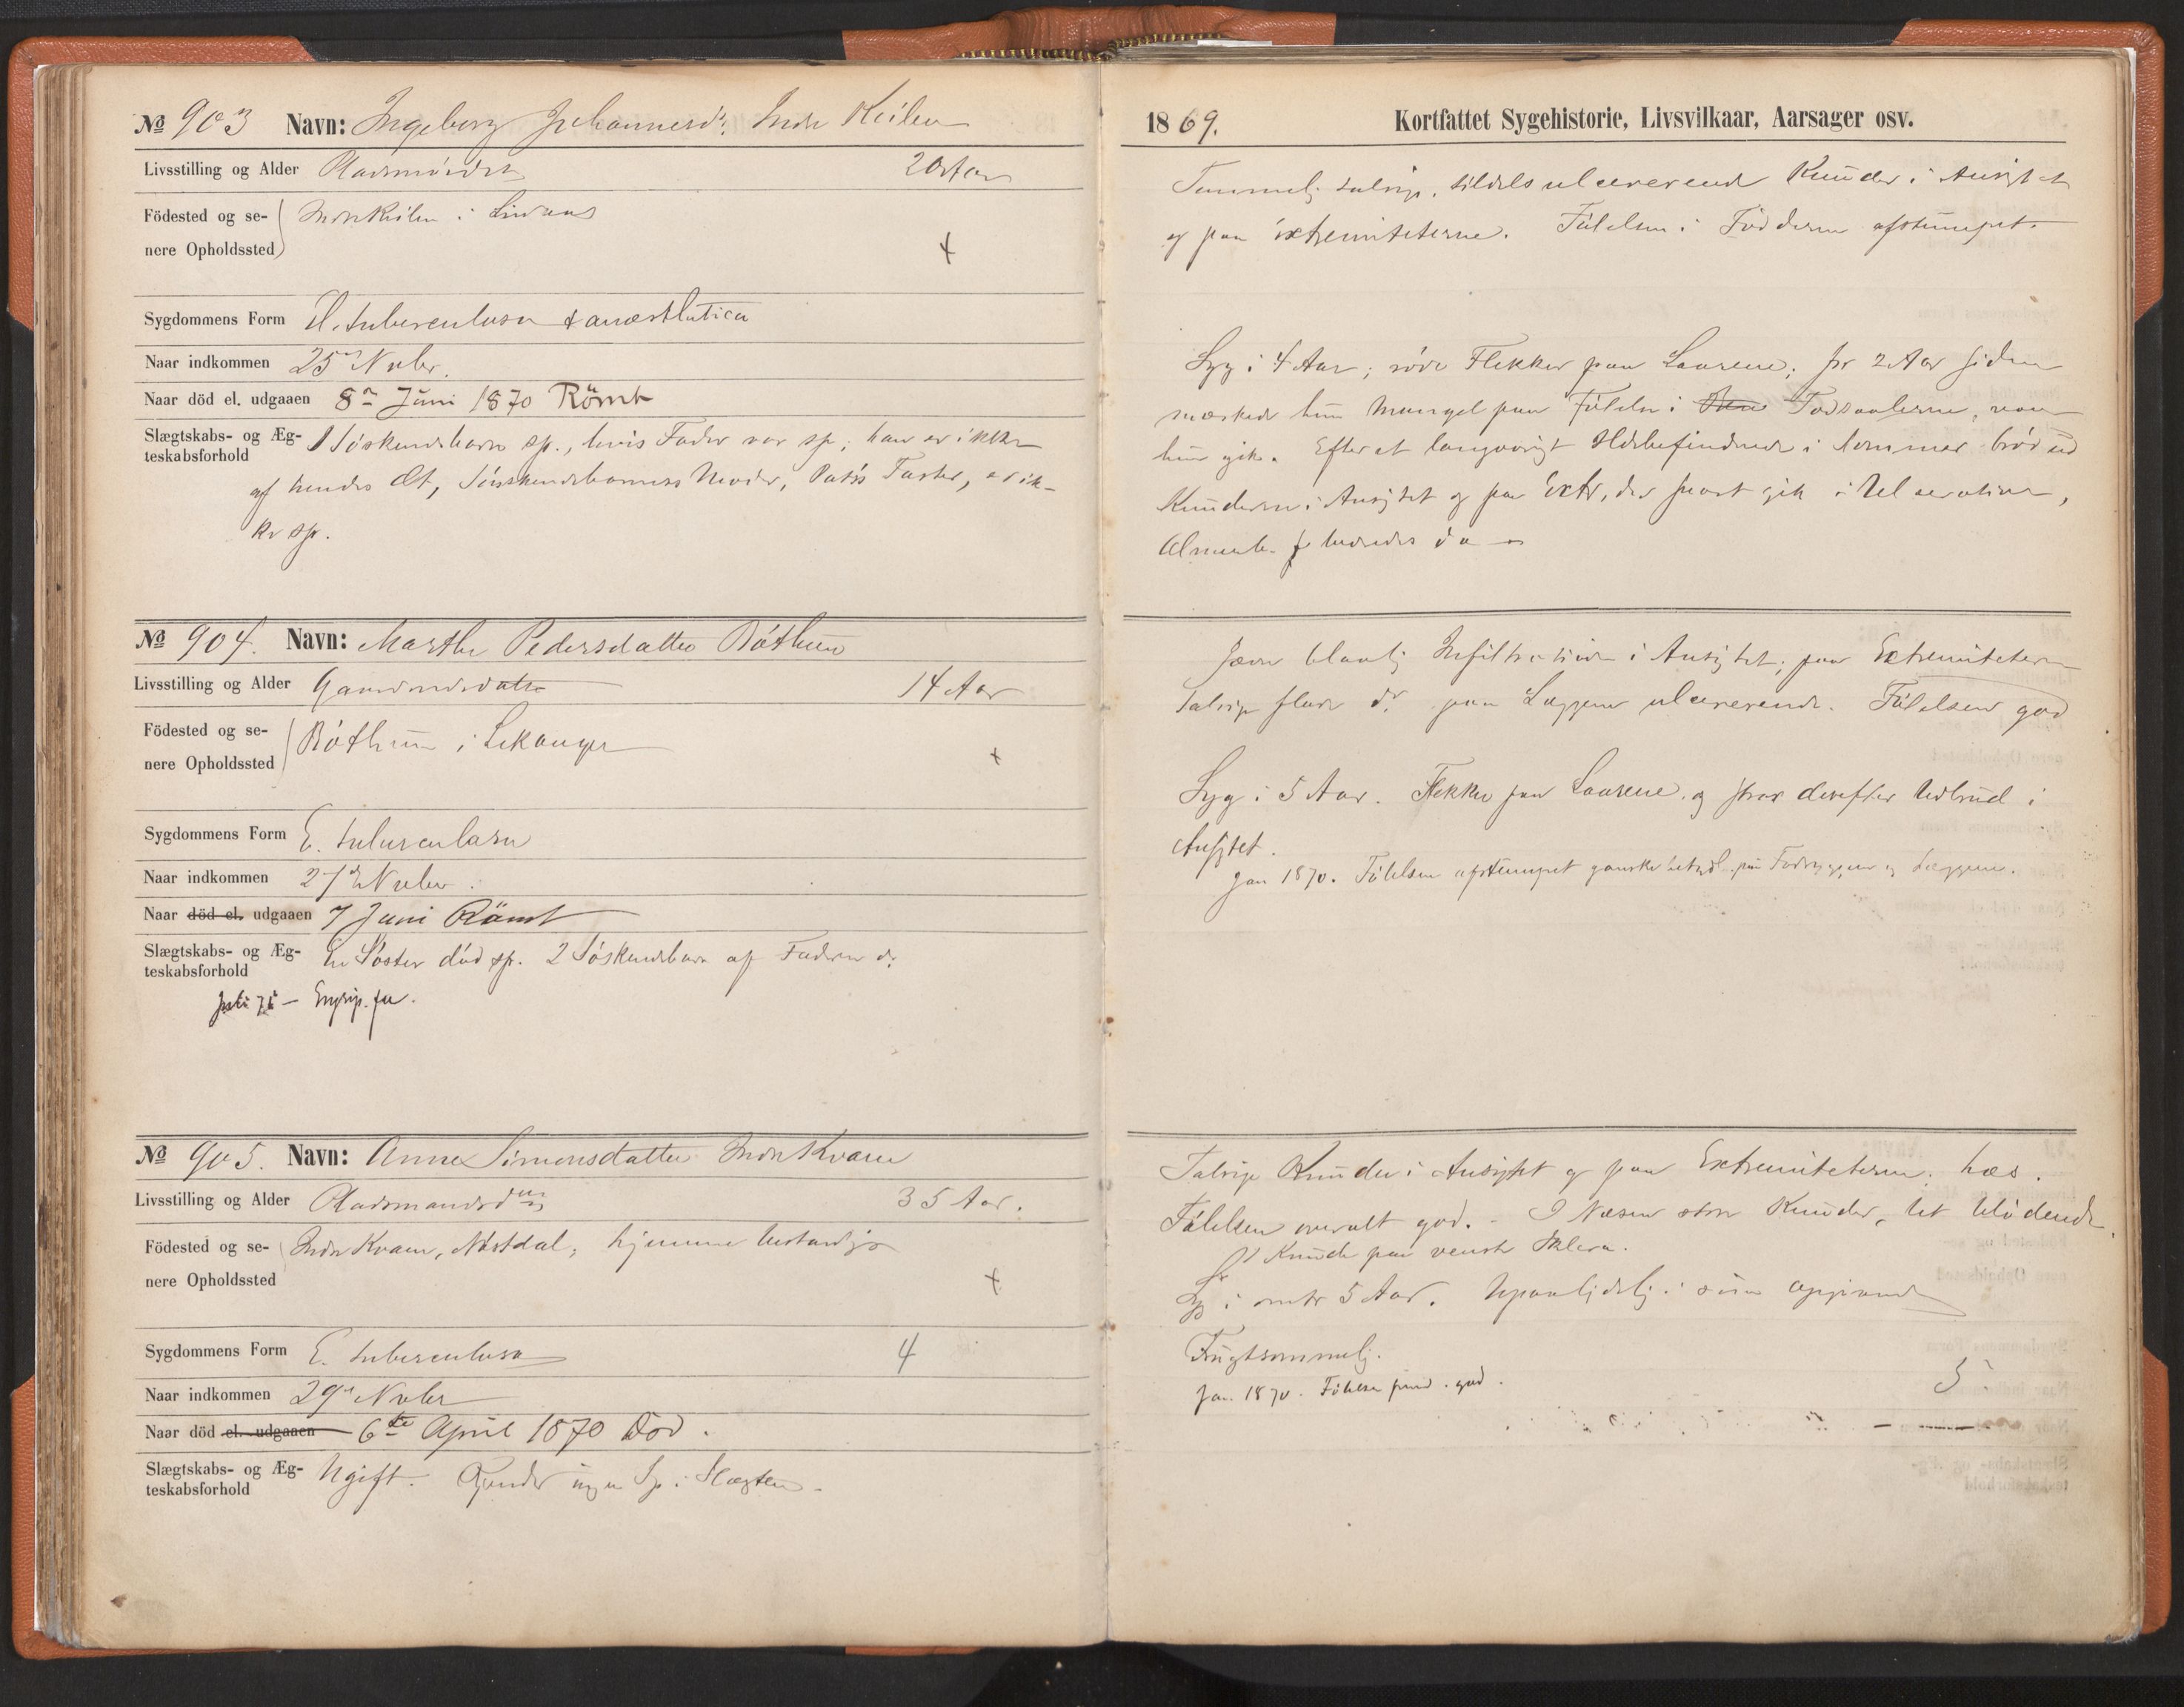 No 903 Navn: Ingeborg Johannesdr. Indre Keilen
Livsstilling og Alder Pladsmandsdr 20 Aar
Födested og se- Indre Keilen i Lindaas
nere Opholdssted +
Sygdommens Form E. tuberculosa & anæsthetica
Naar indkommen 25de Novbr.
Naar död el. udgaaen 8de Juni 1870 Römt
Slægtskabs- og Æg- 1 Söskendebarn sp., hvis Fader var sp; han er ikke
teskabsforhold
af hendes Æt, Söskendebarnets Moder, Pats Faster, er ik-
ke sp.
No 904. Navn: Marthe Pedersdatter Böthun
Livsstilling og Alder Gaardmdsdatter 14 Aar
Födested og se- Böthun i Lekanger
nere Opholdssted +
Sygdommens Form E. tuberculosa
Naar indkommen 27de Novbr.
Naar död el. udgaaen 7 Juni Römt
Slægtskabs- og Æg- En Söster död sp. 2 Söskendebarn af Faderen do.
teskabsforhold
No 905. Navn: Anne Simonsdatter Indre Kvam
Livsstilling og Alder Pladsmandsdr 35 Aar.
Födested og se- Indre Kvam, Nostdal, hjemme bestandig
nere Opholdssted +
Sygdommens Form E. tuberculosa 4
Naar indkommen 29de Novbr
Naar död el. udgaaen 6te April 1870 Död.
Slægtskabs- og Æg- Ugift. Kjender ingen Sp. i Slægten.
teskabsforhold
1869. Kortfattet Sygehistorie, Livsvilkaar, Aarsager osv.
Temmelig talrige, tildels ulcererende Knuder i Ansigtet
og paa Extremiteterne. Fölelsen i Födderne afstumpet.
Syg i 4 Aar; röde Flekker paa Laarene; for 2 Aar siden
mærkede hun Mangel paa Fölelse i Fodsaalerne, naar
hun gik. Efter et langvarigt Ildebefindende i Sommer bröd ud
Knuderne i Ansigtet og paa Extr, der snart gik i Ulceration,
Almenbef. bedredes da
Jævn blaalig Infiltration i Ansigtet; paa Extremiteterne
talrige flade do. paa Læggene ulcererende. Fölelsen god
Syg i 5 Aar. Flekker paa Laarene og strax derefter Udbrud i
Ansigtet.
Jan 1870. Fölelsen afstumpet ganske betydl. paa Fodryggene og Læggene.
Talrige Knuder i Ansigtet og paa Extremiteterne; hæs.
Fölelsen overalt god. - I Næsen store Knuder, let blödende.
1 Knude paa venstre Sklera.
Syg i omtr 5 Aar. Upaalidelig i sine Opgivende
Frugtsommelig.
Jan. 1870. Fölelse fremd. god.
5